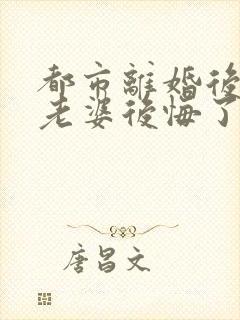 都市離婚後
老婆後悔了
唐昌文